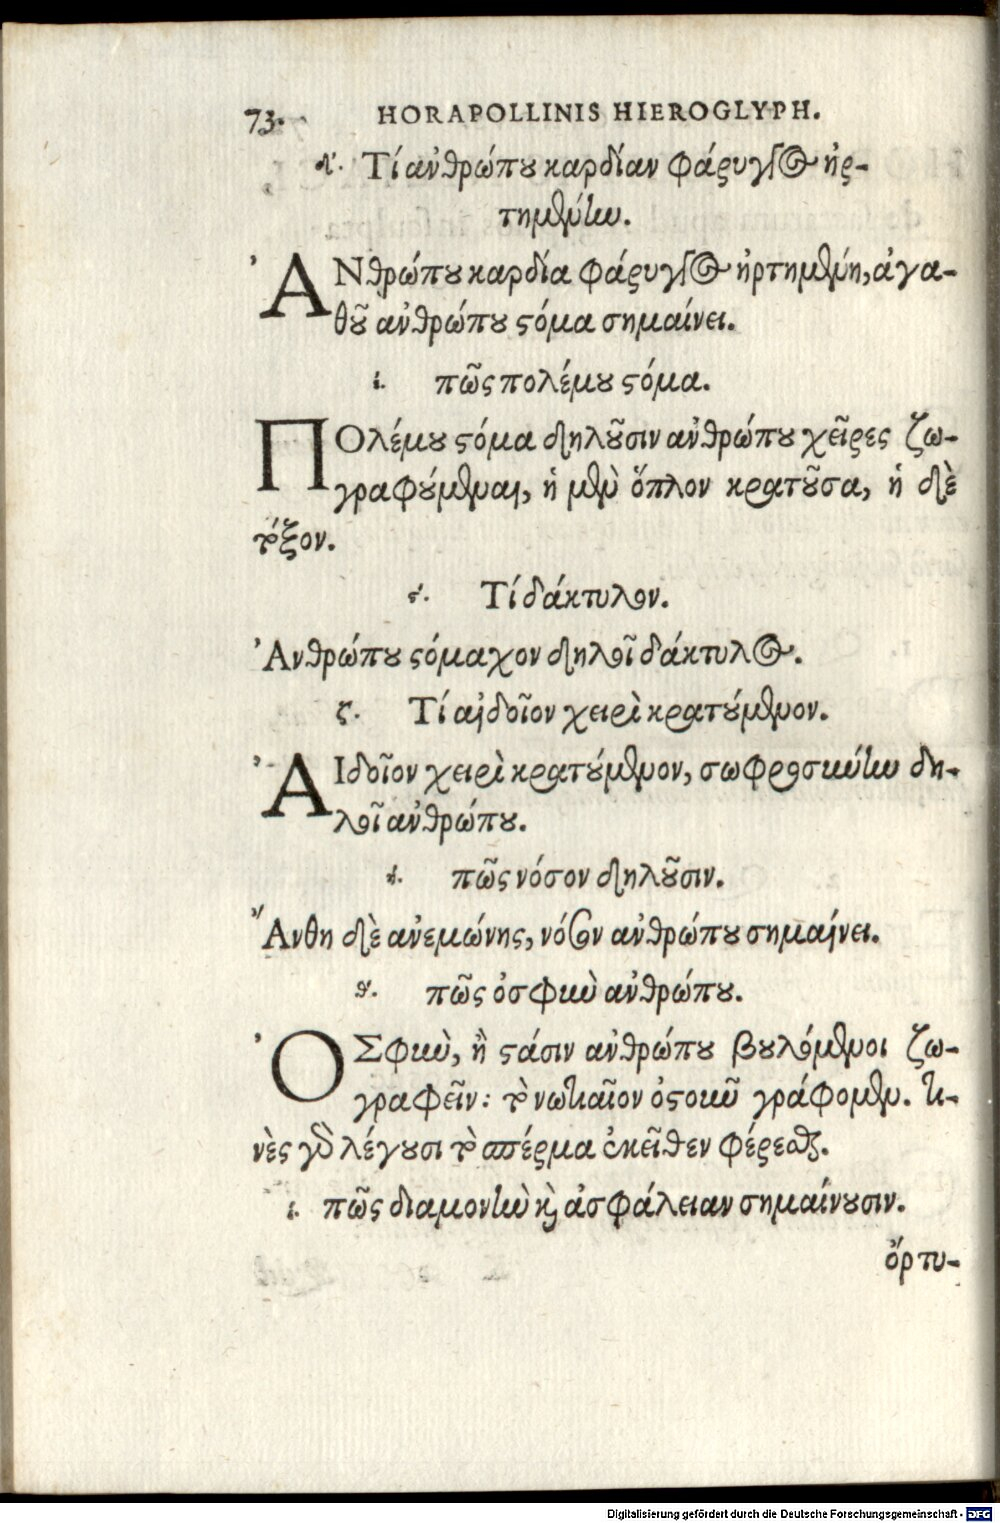 73. HORAPOLLINIS HIEROGLYPH.
δ'. Τί ἀνθρώπου καρδίαν φάρυγγος ἠρ-
τημένην.
ἈΝθρώπου καρδία φάρυγγος ἠρτημένη, ἀγα-
θοῦ ἀνθρώπου στόμα σημαίνει.
ε. πῶς πολέμου στόμα.
ΠΟλέμου στόμα δηλοῦσιν ἀνθρώπου χεῖρες ζω-
γραφούμεναι, ἡ μὲν ὅπλον κρατοῦσα, ἡ δὲ
τόξον.
ϛ'. Τί δάκτυλον.
Ἀνθρώπου στόμαχον δηλοῖ δάκτυλος.
ζ. Τί αἰδοῖον χειρὶ κρατούμενον.
ἈΙδοῖον χειρὶ κρατούμενον, σωφροσύνην δη-
λοῖ ἀνθρώπου.
η. πῶς νόσον δηλοῦσιν.
Ἄνθη δὲ ἀνεμώνης, νόσον ἀνθρώπου σημαίνει.
θ. πῶς ὀσφὺν ἀνθρώπου.
ὈΣφὺν, ἢ στάσιν ἀνθρώπου βουλόμενοι ζω-
γραφεῖν: τὸ νωτιαῖον ὀστοῦν γράφομεν. τι-
νὲς γὰρ λέγουσι τὸ σπέρμα ἐκεῖθεν φέρεσθαι.
ι. πῶς διαμονὴν καὶ ἀσφάλειαν σημαίνουσιν.
ὄρτυ-
Digitalisierung gefördert durch die Deutsche Forschungsgemeinschaft - DFG